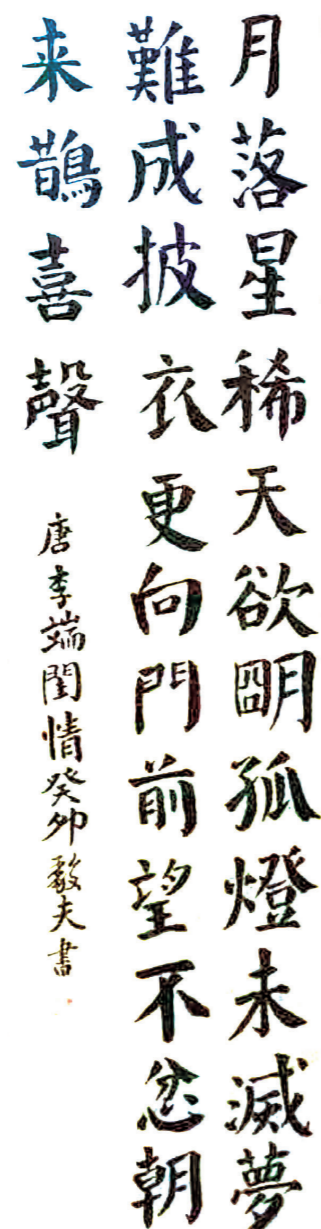 月落星稀天欲明孤燈未滅夢
難成披衣更向門前望不忿朝
来鵲喜聲
唐李端閨情癸卯毅夫書